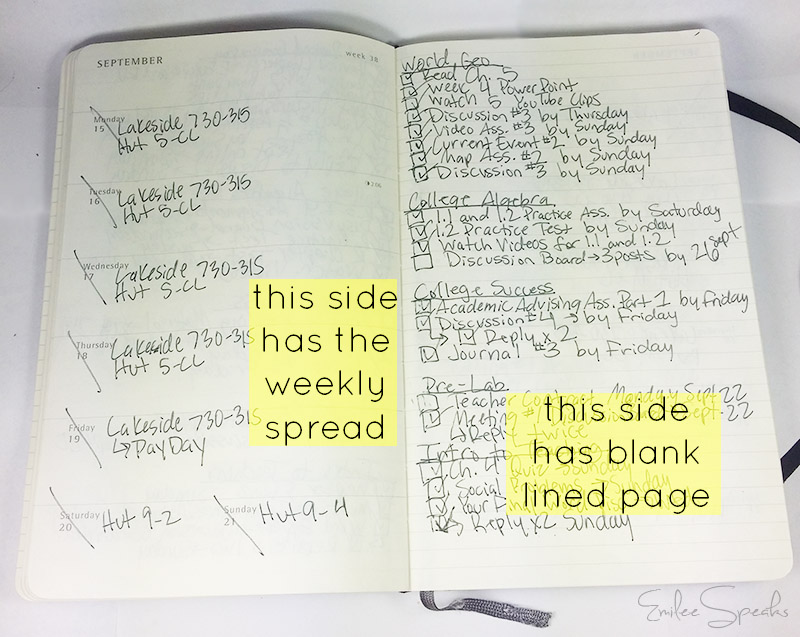 SEPTEMBER
week 38
Monday
15
Lakeside 730-315
Hut 5-CL
Tuesday
16
Lakeside 730-315
Hut 5-CL
2:06
Wednesday
17
Lakeside 730-315
Hut 5-CL
Thursday
18
Lakeside 730-315
Hut 5-CL
Friday
19
Lakeside 730-315
↳ PayDay
Saturday
20
Hut 9-2
Sunday
21
Hut 9-4
this side
has the
weekly
spread
World Geo
Read Ch. 5
Week 4 PowerPoint
Watch 5 YouTube Clips
Discussion #3 by Thursday
Video Ass. #3 by Sunday
Current Event #2 by Sunday
Map Ass. #2 by Sunday
Discussion #3 by Sunday
College Algebra
1.1 and 1.2 Practice Ass. by Saturday
1.2 Practice Test by Sunday
Watch Videos for 1.1 and 1.2
Discussion Board → 3 posts by 26 sept
College Success
Academic Advising Ass. Part 1 by Friday
Discussion #4 → by Friday
↳ Reply x 2
Journal #3 by Friday
Pre-Lab
Teacher Contract Monday Sept. 22
Meeting #1 Sept. 22
↳ Reply twice
Intro
Ch. 4 Quiz → Sunday
Social Problems → Sunday
Your
Reply x2 Sunday
this side
has blank
lined page
EmileeSpeaks